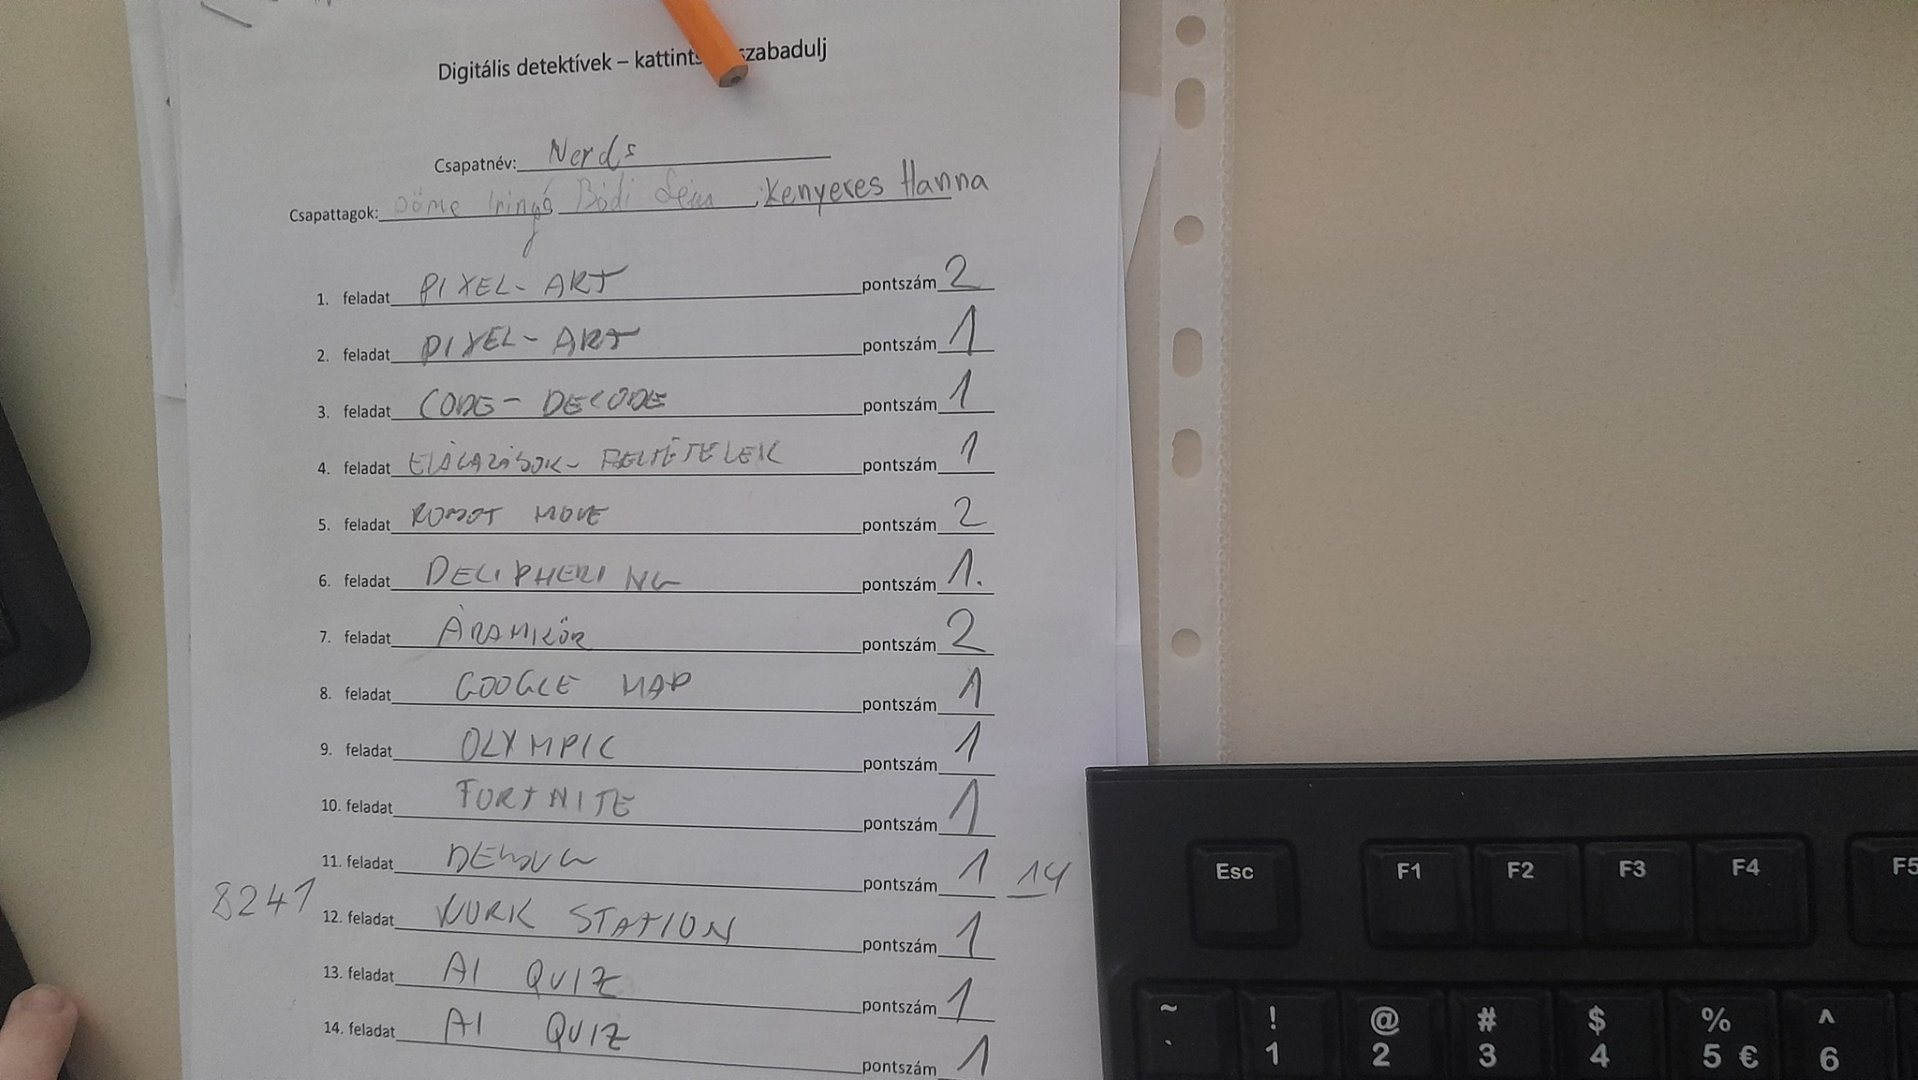 Digitális detektívek – kattints szabadulj
Csapatnév: Nerds
Csapattagok: Döme Iringó Bódi ; Kenyeres Hanna
1. feladat PIXEL-ART pontszám 2
2. feladat PIXEL-ART pontszám 1
3. feladat CODE-DECODE pontszám 1
4. feladat ELÁGAZÁSOK- FELTÉTELEK pontszám 1
5. feladat ROBOT MOVE pontszám 2
6. feladat DECIPHERING pontszám 1.
7. feladat ÁRAMKÖR pontszám 2
8. feladat GOOGLE MAP pontszám 1
9. feladat OLYMPIC pontszám 1
10. feladat FORTNITE pontszám 1
11. feladat DEBUG pontszám 1 14
8241 12. feladat WORK STATION pontszám 1
13. feladat AI QUIZ pontszám 1
14. feladat AI QUIZ pontszám 1
Esc F1 F2 F3 F4 F5
~ ! @ # $ % ^
` 1 2 3 4 5 € 6